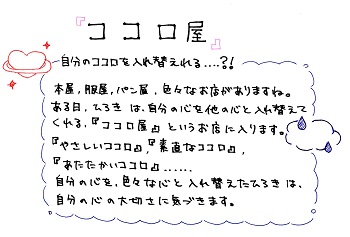 『ココロ屋』
自分のココロを入れ替えれる....?!
本屋,服屋,パン屋,色々なお店がありますね。
ある日,ひろき は,自分の心を他の心と入れ替えて
くれる,『ココロ屋』というお店に入ります。
『やさしいココロ』,『素直なココロ』,
『あたたかいココロ』......
自分の心を,色々な心と入れ替えたひろき は,
自分の心の大切さに気づきます。